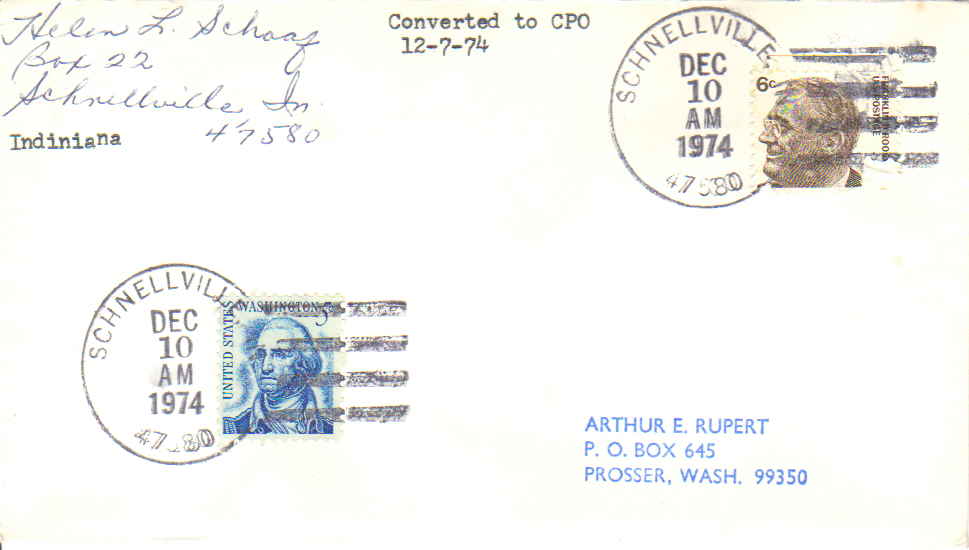 Helen L. Schaaf
Box 22
Schnellville, In.
47580
Indiniana
Converted to CPO
12-7-74
SCHNELLVILLE
DEC
10
AM
1974
47580
6c
FRANKLIN ROOS
US POSTAGE
SCHNELLVILL
DEC
10
AM
1974
47580
UNITED STATES
WASHINGTON 5c
ARTHUR E. RUPERT
P. O. BOX 645
PROSSER, WASH. 99350